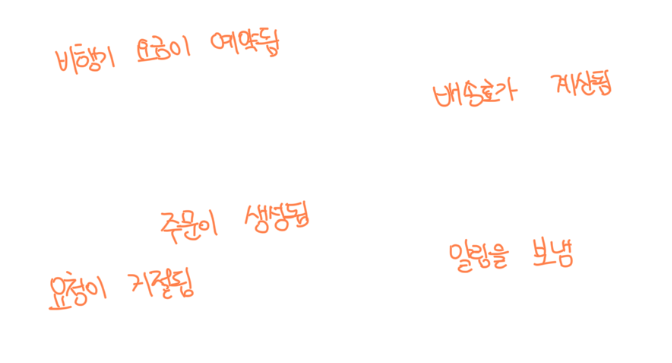 비행기 요금이 예약됨
배송료가 계산됨
주문이 생성됨
알람을 보냄
요청이 거절됨